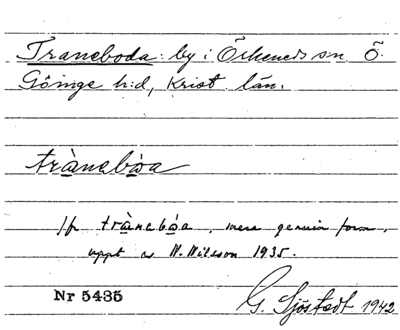 Traneboda: by i Örkeneds sn Ö.
Göinge h:d, Krist. län.
trànebòa
Jfr trànebòa, mera genuin form,
uppt. av N. Nilsson 1935.
Nr 5435
G. Sjöstedt 1942